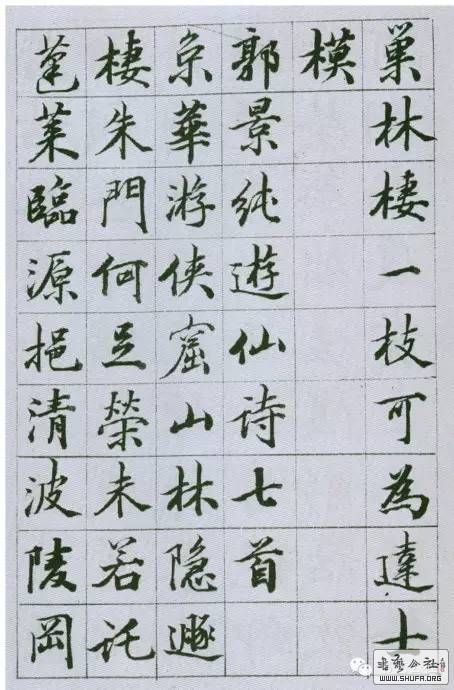 巢林棲一枝可為達士
模
郭景純遊仙诗七首
京華游侠窟山林隐遯
棲朱門何足榮未若託
蓬莱臨源挹清波陵岡
書藝公社
WWW.SHUFA.ORG